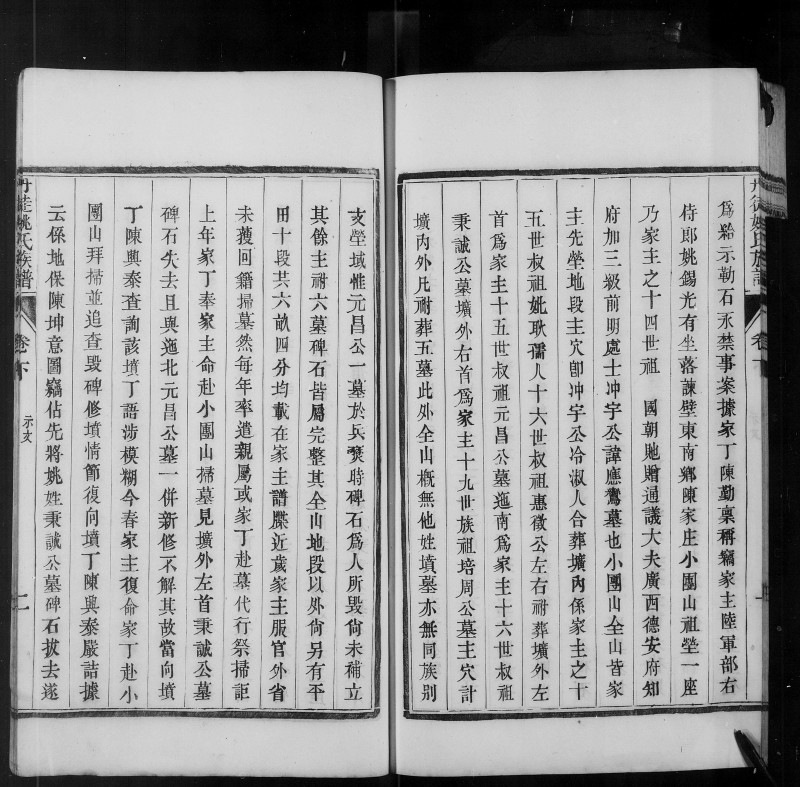 為給示勒石永禁事案據家丁陳勤稟稱竊家主陸軍部右
侍郎姚錫光有坐落諫壁東南鄉陳家庄小團山祖塋一座
乃家主之十四世祖　國朝貤贈通議大夫廣西德安府知
府加三級前明處士冲宇公諱應鸞墓也小團山全山皆家
主先塋地段主穴卽冲宇公冷淑人合葬壙內係家主之十
五世叔祖妣耿孺人十六世叔祖惠徵公左右祔葬壙外左
首為家主十五世叔祖元昌公墓迤南為家主十六世叔祖
秉誠公墓壙外右首為家主十九世族祖培周公墓主穴計
壙內外凡祔葬五墓此外全山概無他姓墳墓亦無同族別
支塋域惟元昌公一墓於兵燹時碑石為人所毀尙未補立
其餘主祔六墓碑石皆屬完整其全山地段以外尙另有平
田十段共六畝四分均載在家主譜牒近歲家主服官外省
未獲回籍掃墓然每年率遣親屬或家丁赴墓代行祭掃詎
上年家丁奉家主命赴小團山掃墓見壙外左首秉誠公墓
碑石失去且與迤北元昌公墓一併新修不解其故當向墳
丁陳興泰查詢該墳丁語涉模糊今春家主復侖家丁赴小
團山拜掃並追查毀碑修墳情節復向墳丁陳興泰嚴詰據
云係地保陳坤意圖竊佔先將姚姓秉誠公墓碑石拔去遂
丹徒姚氏族譜
卷下
示文
二